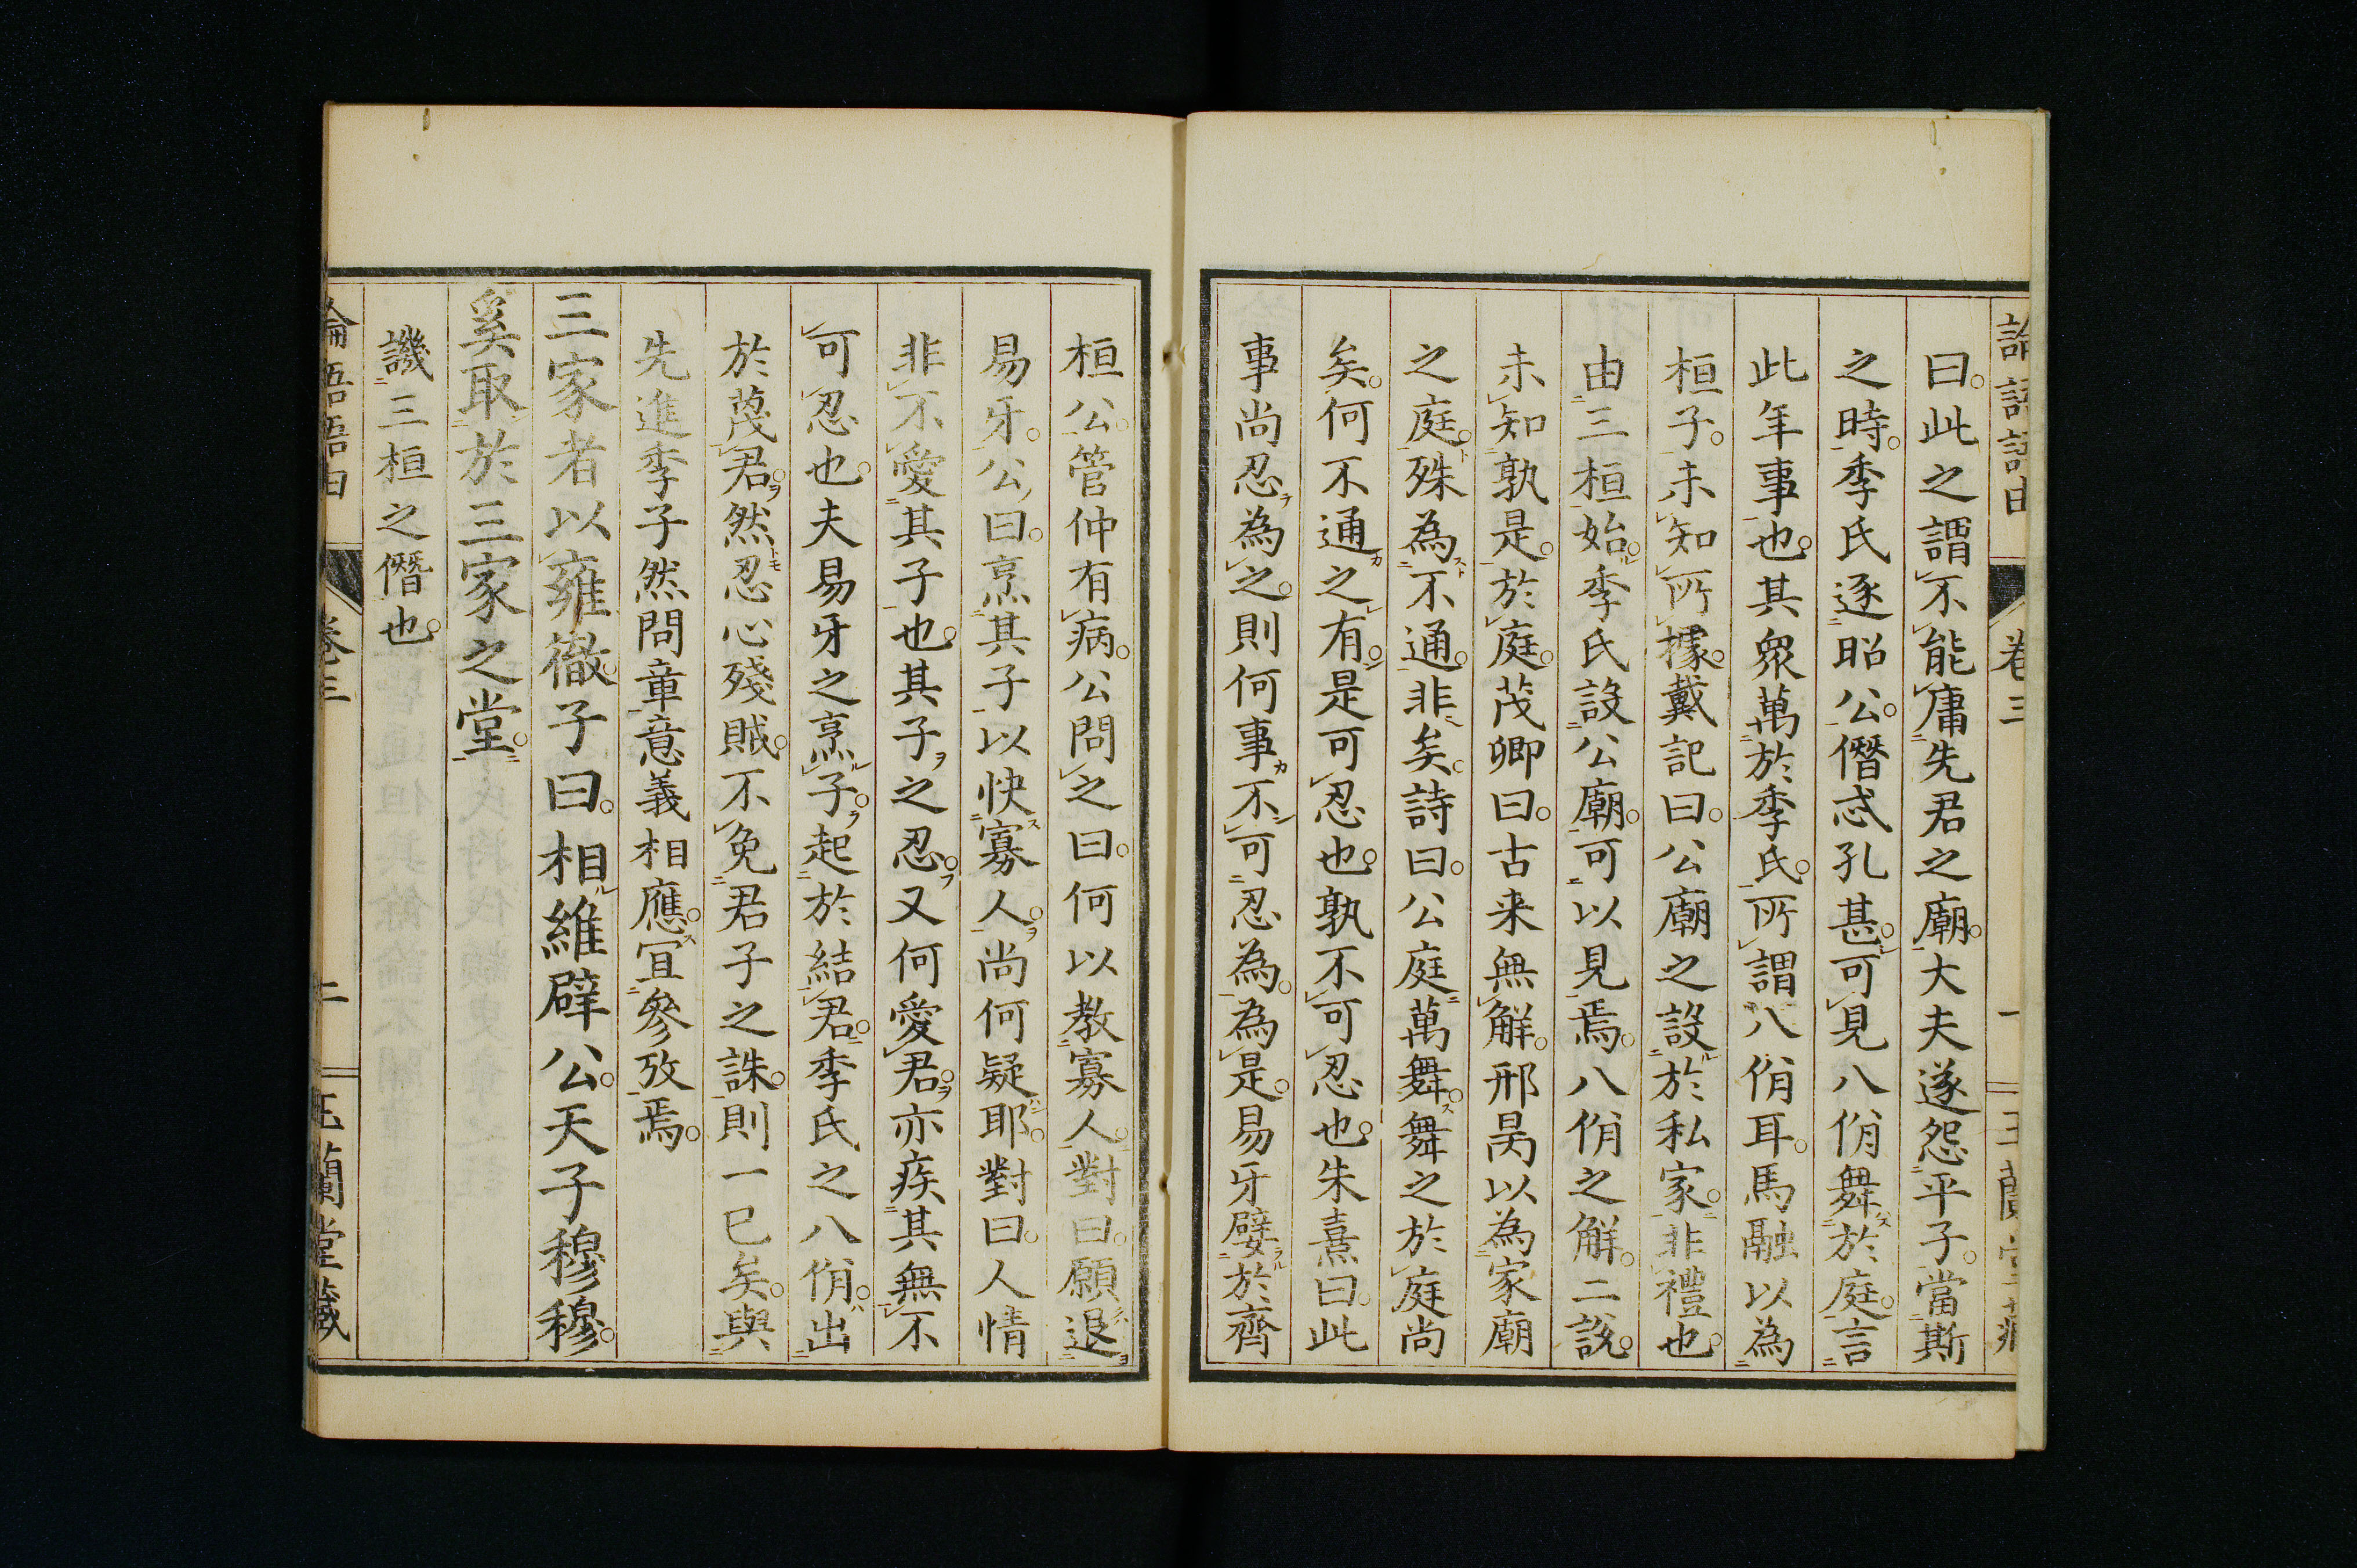 曰此之謂不能庸先君之廟大夫遂怨平子當斯
之時季氏逐昭公僭忒孔甚可見八佾舞於庭言
此年事也其眾萬於季氏所謂八佾耳馬融以為
桓子未知所據戴記曰公廟之設於私家非禮也
由三桓始季氏設公廟可以見焉八佾之解二說
未知孰是於庭茂卿曰古来無解邢昺以為家廟
之庭殊為不通非矣詩曰公庭萬舞舞之於庭尚
矣何不通之有是可忍也孰不可忍也朱熹曰此
事尚忍為之則何事不可忍為為是易牙嬖於齊
桓公管仲有病公問之曰何以教寡人對曰願退
易牙公曰烹其子以快寡人尚何疑耶對曰人情
非不愛其子也其子之忍又何愛君亦疾其無不
可忍也夫易牙之烹子起於結君季氏之八佾出
於蔑君然忍心殘賊不免君子之誅則一已矣與
先進季子然問章意義相應宜參攷焉
三家者以雍徹子曰相維辟公天子穆穆
奚取於三家之堂
譏三桓之僭也
論語語由
卷三
二
玉蘭堂藏